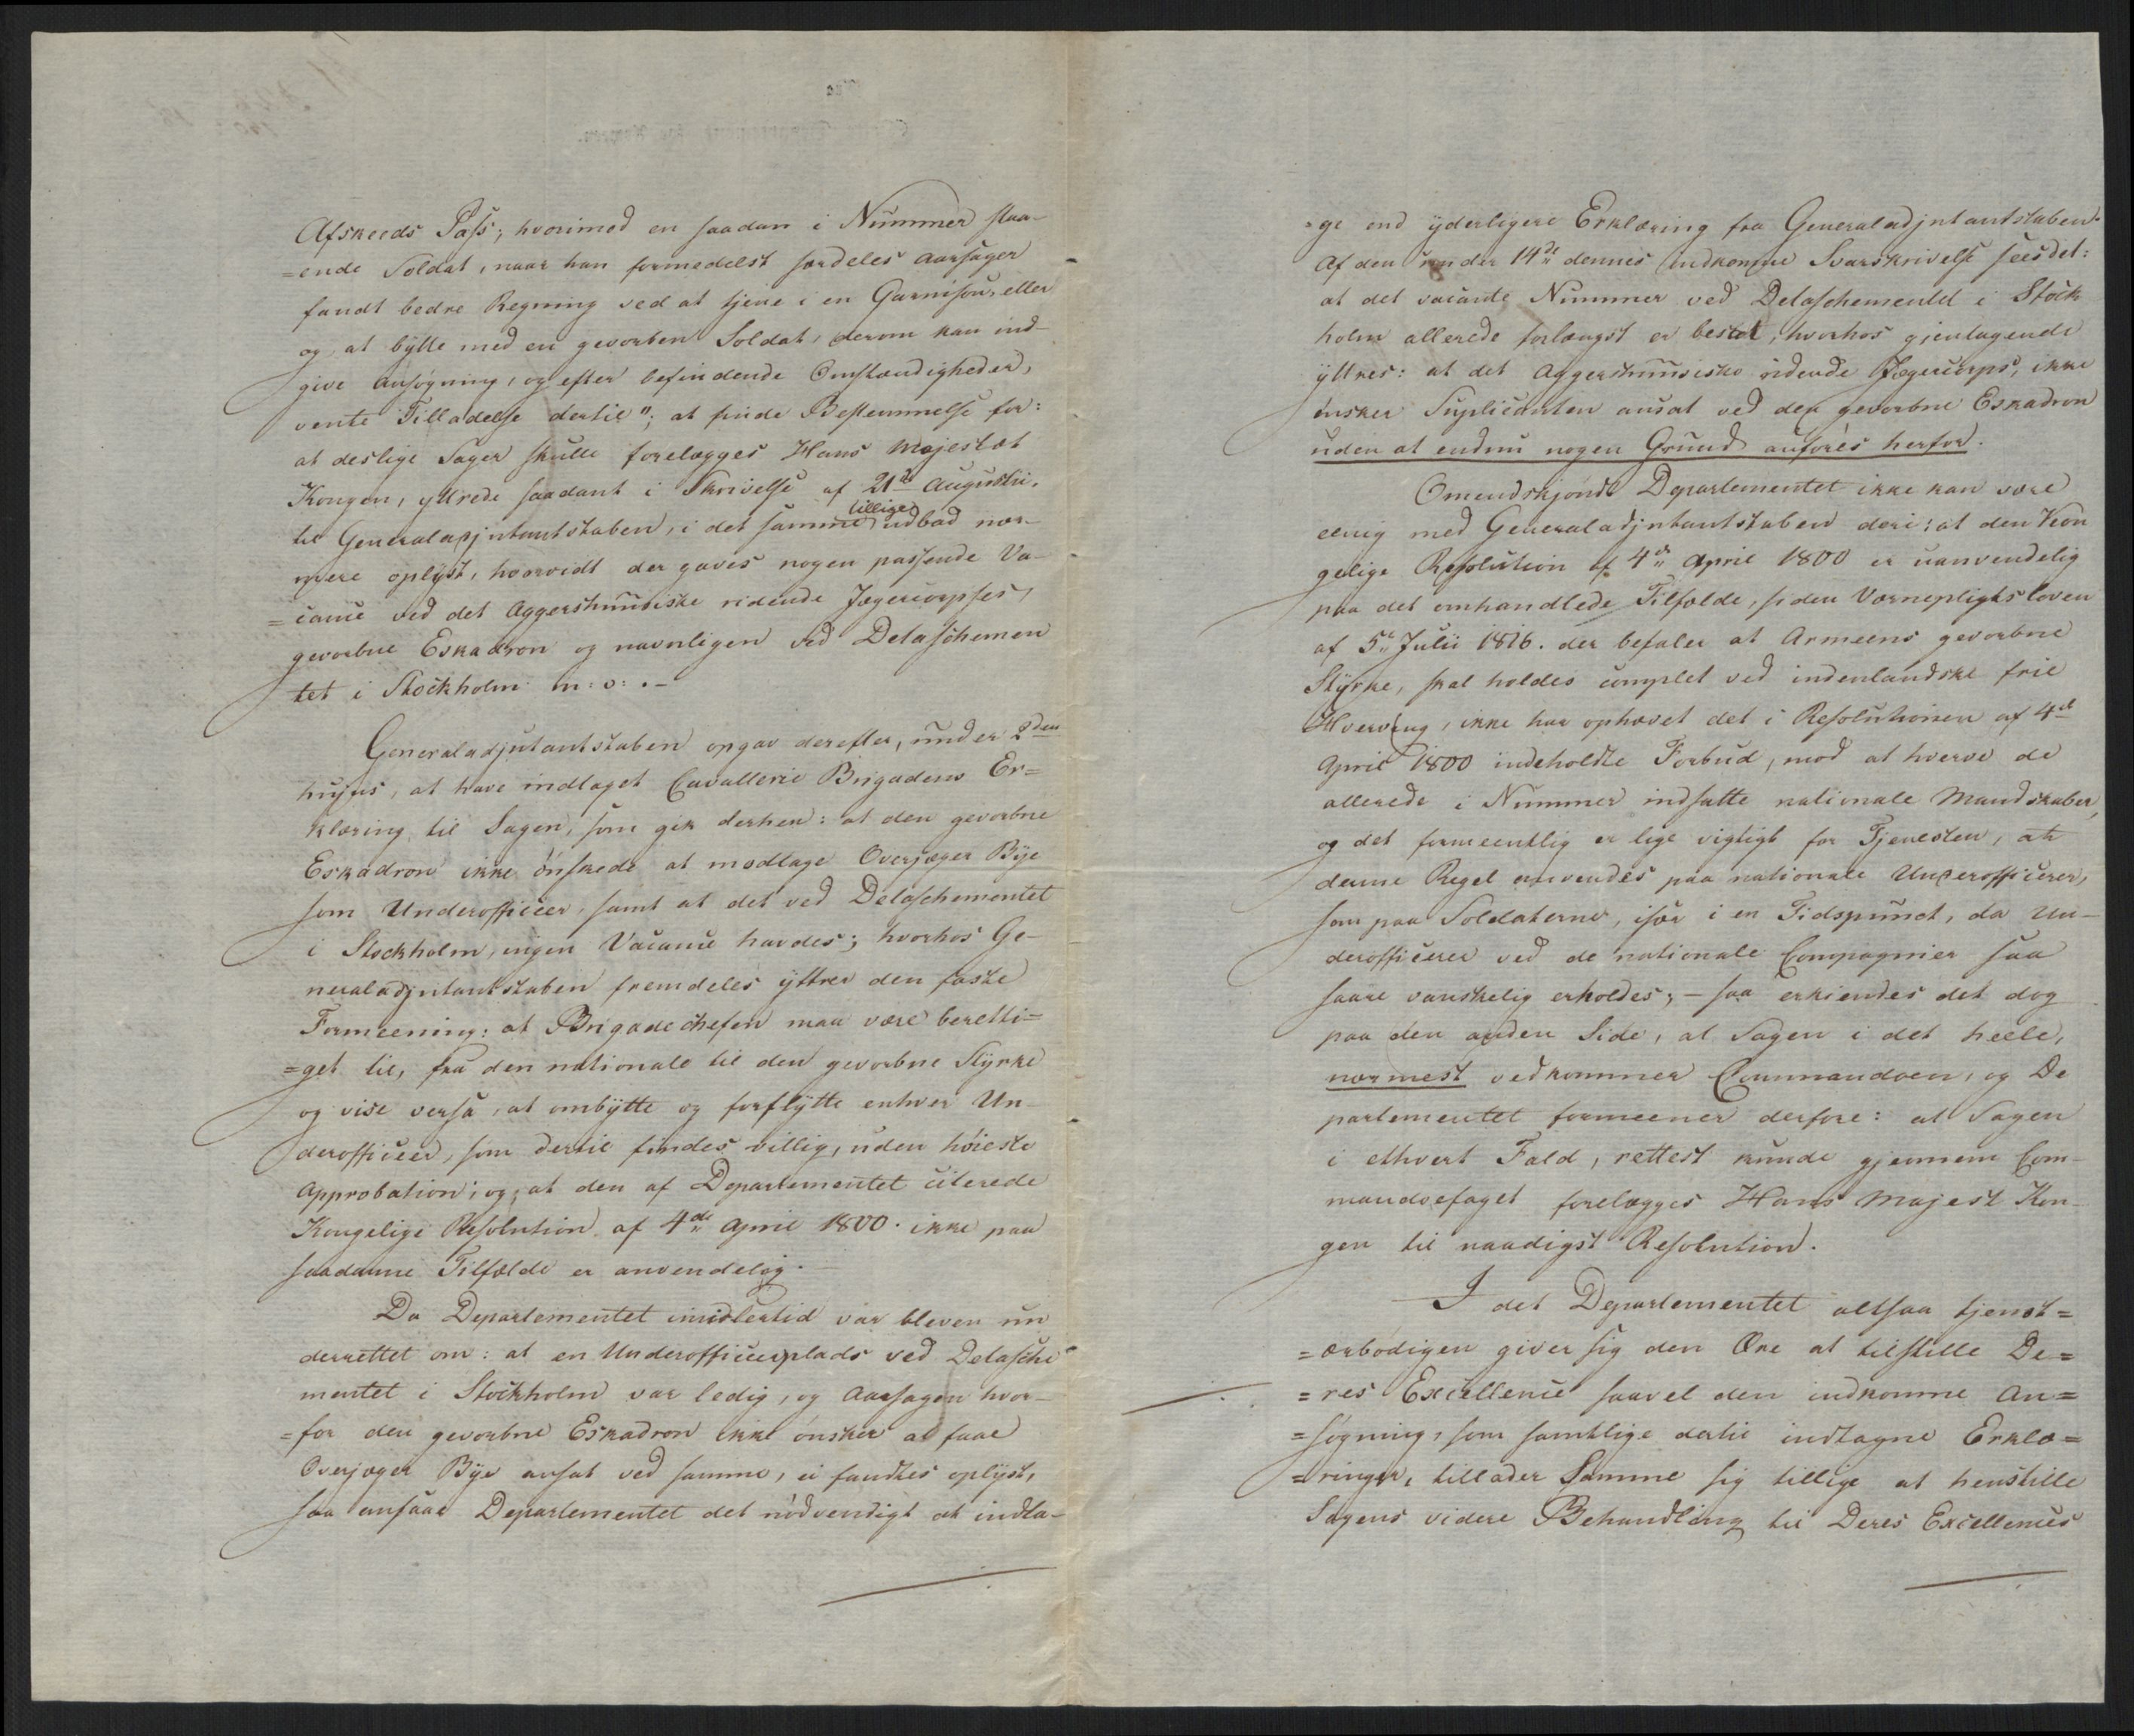 Afskeeds Pass; hvorimod en saadan i Nummer staa-
=ende Soldat, naar han formedelst særdeles Aarsager
fandt bedre Regning ved at tjene i en Garnison, eller
og at bÿtte med en gevorben Soldat, derom kan ind-
give Ansøgning, og efter befindende Omstændigheder,
vente Tilladelse dertil"; at finde Bestemmelse for:
at deslige Sager skulle forelægges Hans Majestæt
Kongen, yttrede saadant i Skrivelse af 21de Augustii,
til Generaladjutantstaben, i det samme tillige udbad nær-
mere oplÿst, hvorvidt der gaves nogen passende Va-
=cance ved det Aggershuusiske ridende Jægercorpses,
gevorbne Eskadron og navnligen ved Detaschemen
tet i Stockholm m: v: . –
Generaladjutantstaben opgav derefter, under 2den
hujus, at have indtaget Cavallerie Brigadens Er=
klæring til Sagen, som gik derhen: at den gevorbne
Eskadron ikke ønskede at modtage Overjæger Bÿe
som Underofficeer, samt at det ved Detaschementet
i Stockholm, ingen Vacance havdes; hvorhos Ge-
neraladjutantstaben fremdeles ÿttrer den faste
Formeening: at Brigadechefen maa være beretti=
=get til, fra den nationale til den gevorbne Stÿrke
og vise versa, at ombÿtte og forflÿtte enhver Un-
derofficeer, som dertil findes villig, uden høieste
Approbation; og, at den af Departementet citerede
Kongelige Resolution af 4de April 1800. ikke paa
saadanne Tilfælde er anvendelig.
Da Departementet imidlertid var bleven un
derrettet om: at en Underofficeerplads ved Detasche
mentet i Stockholm var ledig, og Aarsagen hvor-
=for den gevorbne Eskadron ikke ønsker at faae
Overjæger Bÿe ansat ved samme, ei fandtes oplÿst,
saa ansaae Departementet det nødvendigt at indta-
=ge end ÿderligere Erklæring fra Generaladjutantstaben.
Af den under 14de dennes indkomne Svarskrivelse sees det:
at det vacante Nummer ved Detaschementet i Stock
holm allerede forlængst er besat, hvorhos gjentagende
ÿttres: at det Aggershuusiske ridende Jægercorps, ikke
ønsker Suplicanten ansat ved den gevorbne Eskadron
uden at endnu nogen Grund anføres herfor.
Omendskjøndt Departementet ikke kan være
eenig med Generaladjutantstaben deri: at den Kon
gelige Resolution af 4de April 1800 er uanvendelig
paa det omhandlede Tilfælde, siden Værnepligtsloven
af 5te Julii 1816. der befaler at Armeens gevorbne
Stÿrke, skal holdes complet ved indenlandske frie
Hverving, ikke har ophævet det i Resolutionen af 4de
April 1800 indeholdte Forbud, mod at hverve de
allerede i Nummer indsatte nationale Mandskaber,
og det formeentlig er lige vigtigt for Tjenesten, at
denne Regel anvendes paa nationale Underofficerer,
som paa Soldaterne, især i en Tidspunct, da Un-
derofficerer ved de nationale Compagnier saa
saare vanskelig erholdes; – saa erkiendes det dog
paa den anden Side, at Sagen i det heele,
nærmest vedkommer Commandoen, og De
partementet formeener derfore: at Sagen
i ethvert Fald, rettest kunde gjennem Com-
mandoefaget forelægges Hans Majest Kon-
gen til naadigst Resolution.
I det Departementet altsaa tjenst=
=ærbødigen giver sig den Ære at tilstille De=
=res Excellence saavel den indkomne An=
=søgning, som samtlige dertil indtagne Erklæ=
=ringer, tillader Samme sig tillige at henstille
Sagens videre Behandling til Deres Excellences